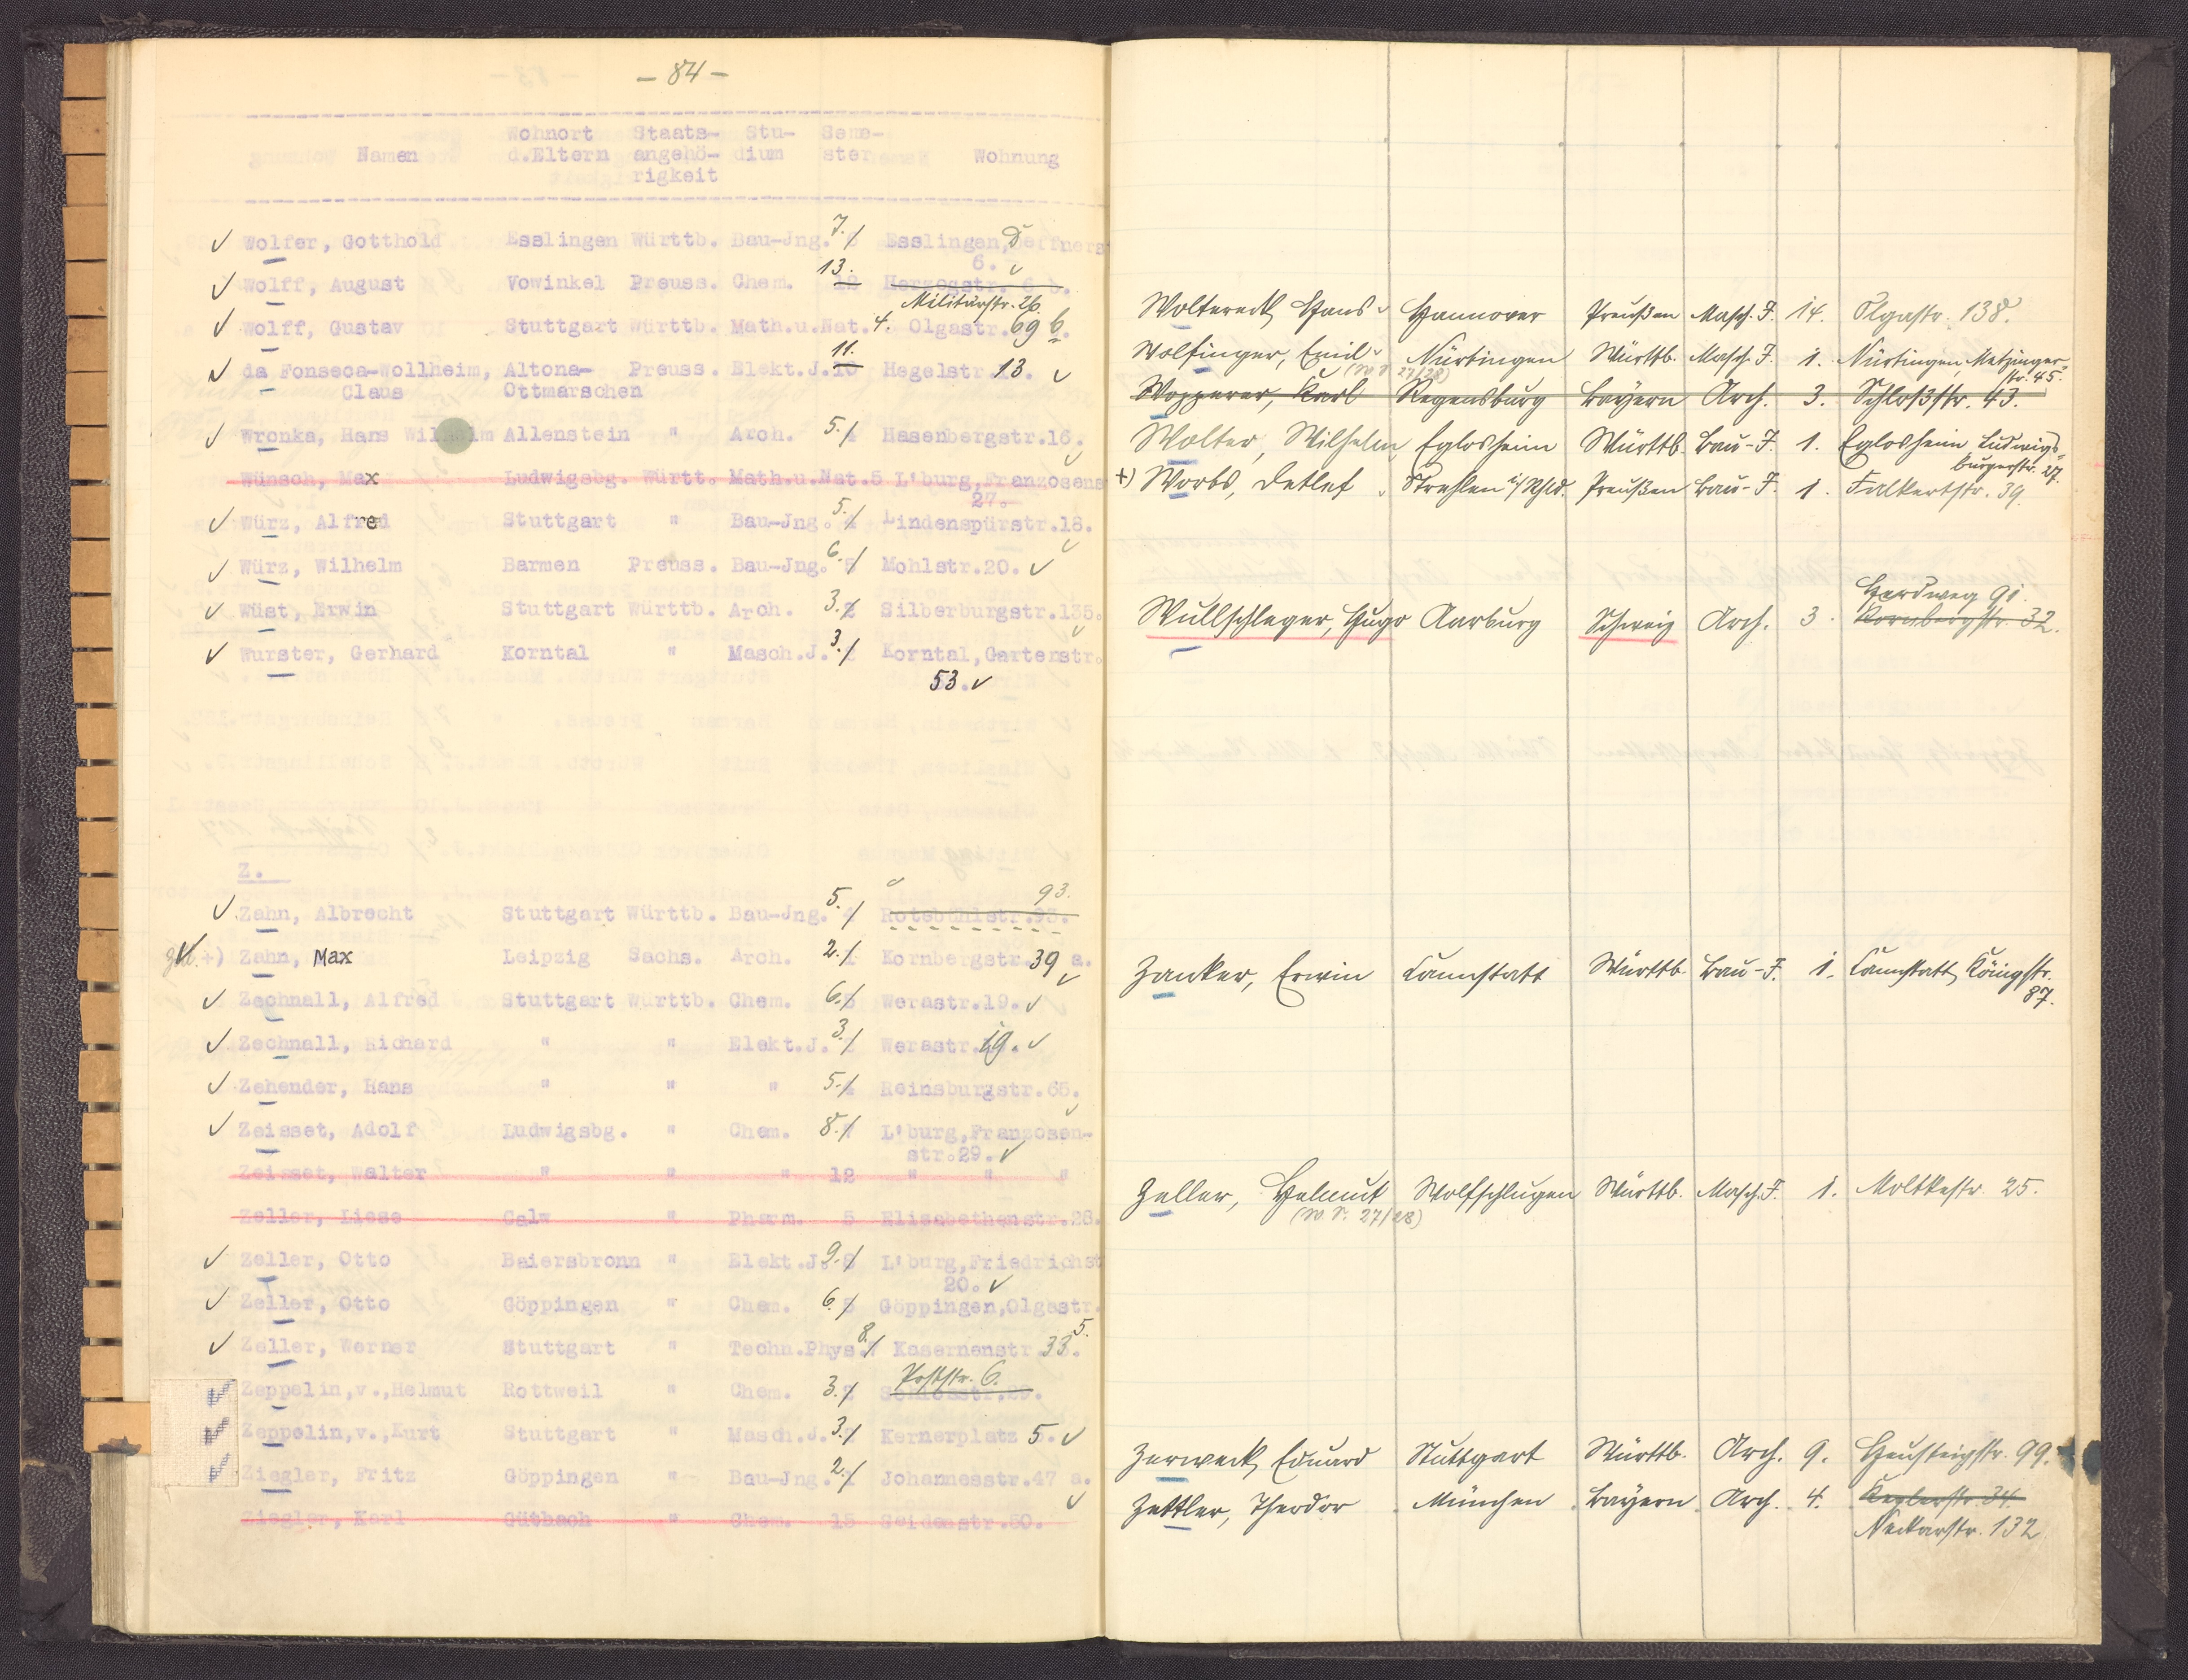 - 84 -
Namen Wohnort d.Eltern Staats-angehö-rigkeit Stu-dium Seme-ster Wohnung
Wolfer, Gotthold Esslingen Württb. Bau-Jng. 7. Esslingen, Deffners
6.
Wolff, August Vowinkel Preuss. Chem. 13. 12 Herzogstr. 6 b.
Militärstr. 26.
Wolff, Gustav Stuttgart Württb. Math.u.Nat. 4. Olgastr. 69 b.
da Fonseca-Wollheim, Altona- Preuss. Elekt.J. 11. 10 Hegelstr. 13.
Claus Ottmarschen
Wronka, Hans Wilhelm Allenstein " Arch. 5. 4 Hasenbergstr.16.
Wünsch, Max Ludwigsbg. Württ. Math.u.Nat.5 L'burg,Franzosens
27.
Würz, Alfred Stuttgart " Bau-Jng. 5. 4 Lindenspürstr.18.
Würz, Wilhelm Barmen Preuss. Bau-Jng. 6. 5 Mohlstr.20.
Wüst, Erwin Stuttgart Württb. Arch. 3. 2 Silberburgstr.135.
Wurster, Gerhard Korntal " Masch.J. 3. 2 Korntal,Gartenstr.
53.
Z.
Zahn, Albrecht Stuttgart Württb. Bau-Jng. 5. 4 Rotebühlstr.93. 93.
+) Zahn, Max Leipzig Sachs. Arch. 2. 1 Kornbergstr. 39 a.
Zechnall, Alfred Stuttgart Württb. Chem. 6. 5 Werastr.19.
Zechnall, Richard " " Elekt.J. 3. Werastr. 19.
Zehender, Hans " " " 5. 4 Reinsburgstr.65.
Zeisset, Adolf Ludwigsbg. " Chem. 8. 7 L'burg,Franzosen-
str.29.
Zeisset, Walter " " " 12 " " "
Zeller, Liese Calw " Pharm. 5 Elisabethenstr.28.
Zeller, Otto Baiersbronn " Elekt.J 9. 8 L'burg,Friedrichst
20.
Zeller, Otto Göppingen " Chem. 6. 5 Göppingen,Olgastr.
5.
Zeller, Werner Stuttgart " Techn.Phys. 8. 7 Kasernenstr 33.
Poststr. 6.
Zeppelin,v.,Helmut Rottweil " Chem. 3. 2 Schlosstr.29.
Zeppelin,v.,Kurt Stuttgart " Masch.J. 3. Kernerplatz 5.
Ziegler, Fritz Göppingen " Bau-Jng. 2. 1 Johannesstr.47 a.
Ziegler, Karl Gütbach " Chem. 15 Seidenstr.50.
Woltereck, Hans Hannover Preußen Masch. J. 14. Olgastr. 138.
Wolfinger, Emil Nürtingen Württb. Masch. J. 1. Nürtingen, Metzinger-
(W. S. 27/28) str. 45.
Wopperer, Karl Regensburg Bayern Arch. 3. Schloßstr. 43.
Wolter, Wilhelm Eglosheim Württb. Bau-J. 1. Eglosheim Ludwigs-
burgerstr. 27.
+) Worbs, Detlef Strehlen Preußen Bau-J. 1. Falkertstr. 39.
Herdweg 91.
Wullschleger, Hugo Aarburg Schweiz Arch. 3. Kornbergstr. 32.
Zanker, Erwin Cannstatt Württb. Bau-J. 1. Cannstatt, Königstr.
87.
Zeller, Helmut Wolfschlugen Württb. Masch. J. 1. Moltkestr. 25.
(W. S. 27/28)
Zerweck, Eduard Stuttgart Württb. Arch. 9. Heusteigstr. 99.
Zettler, Theodor München Bayern Arch. 4. Keplerstr. 34.
Neckarstr. 132.